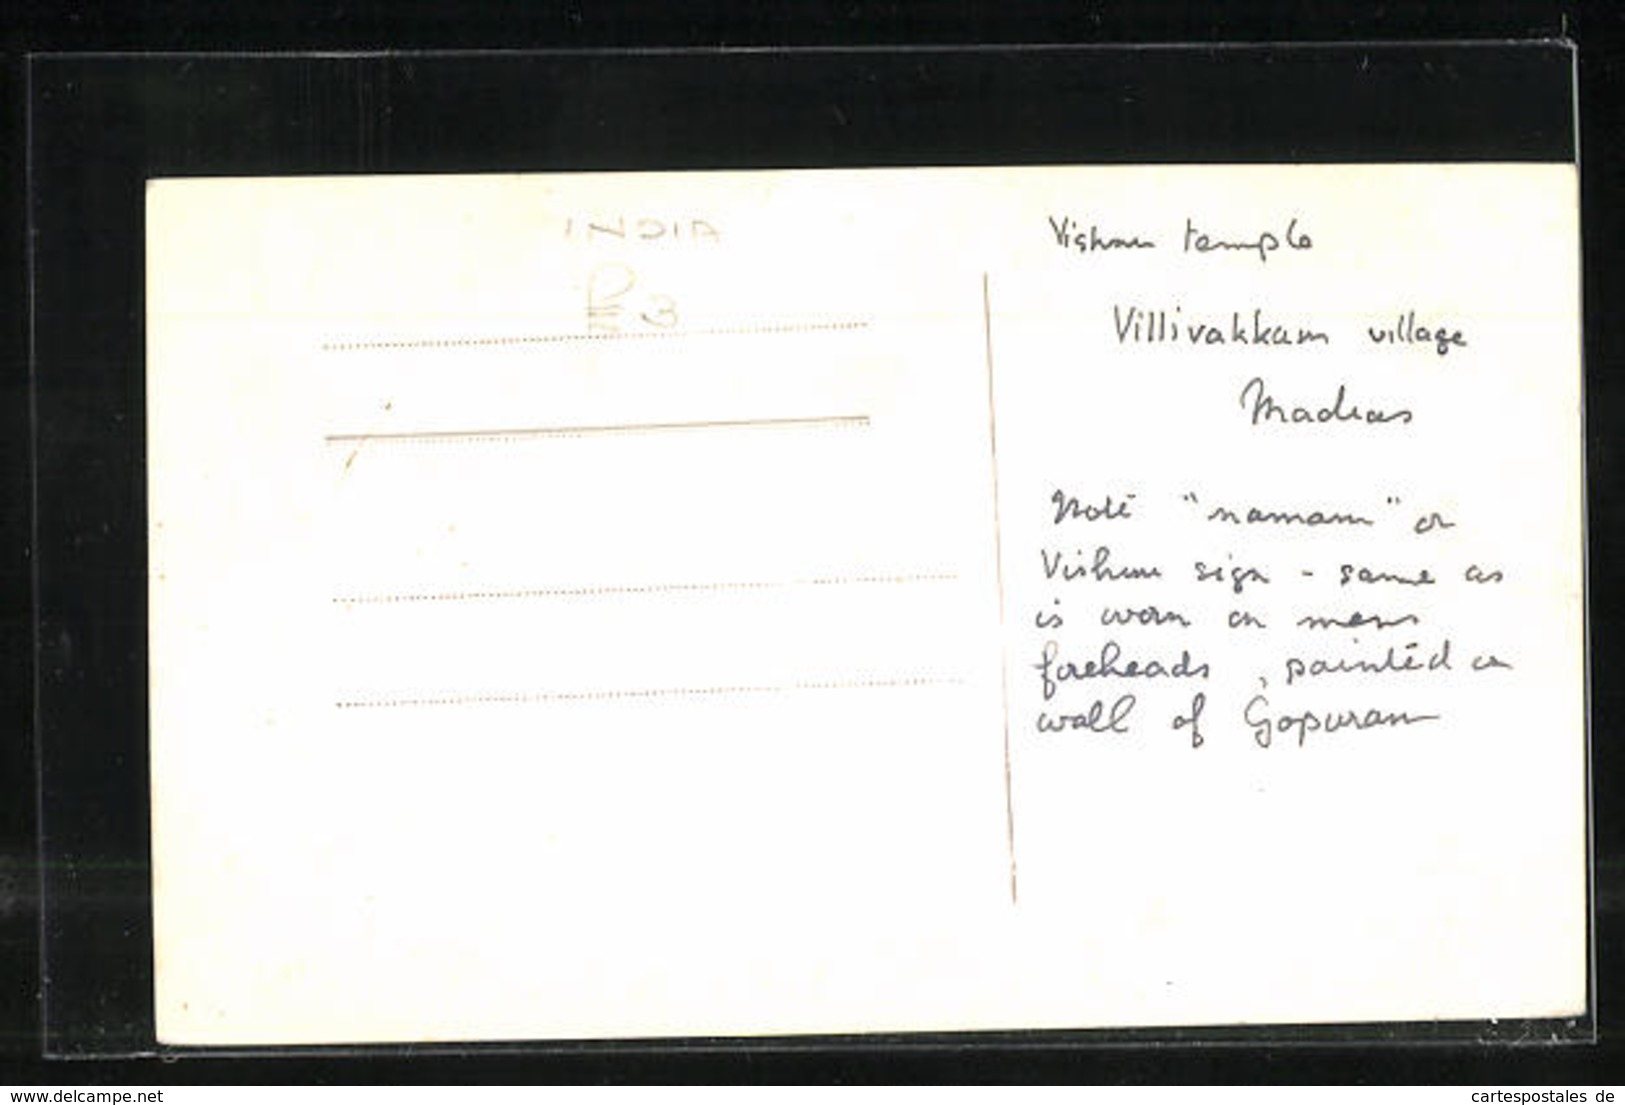 INDIA
3
Vishnu temple
Villivakkam village
Madras
Note "namam" or
Vishnu sign - same as
is worn on mens
foreheads, painted on
wall of Gopuram
www.delcampe.net
cartespostales de